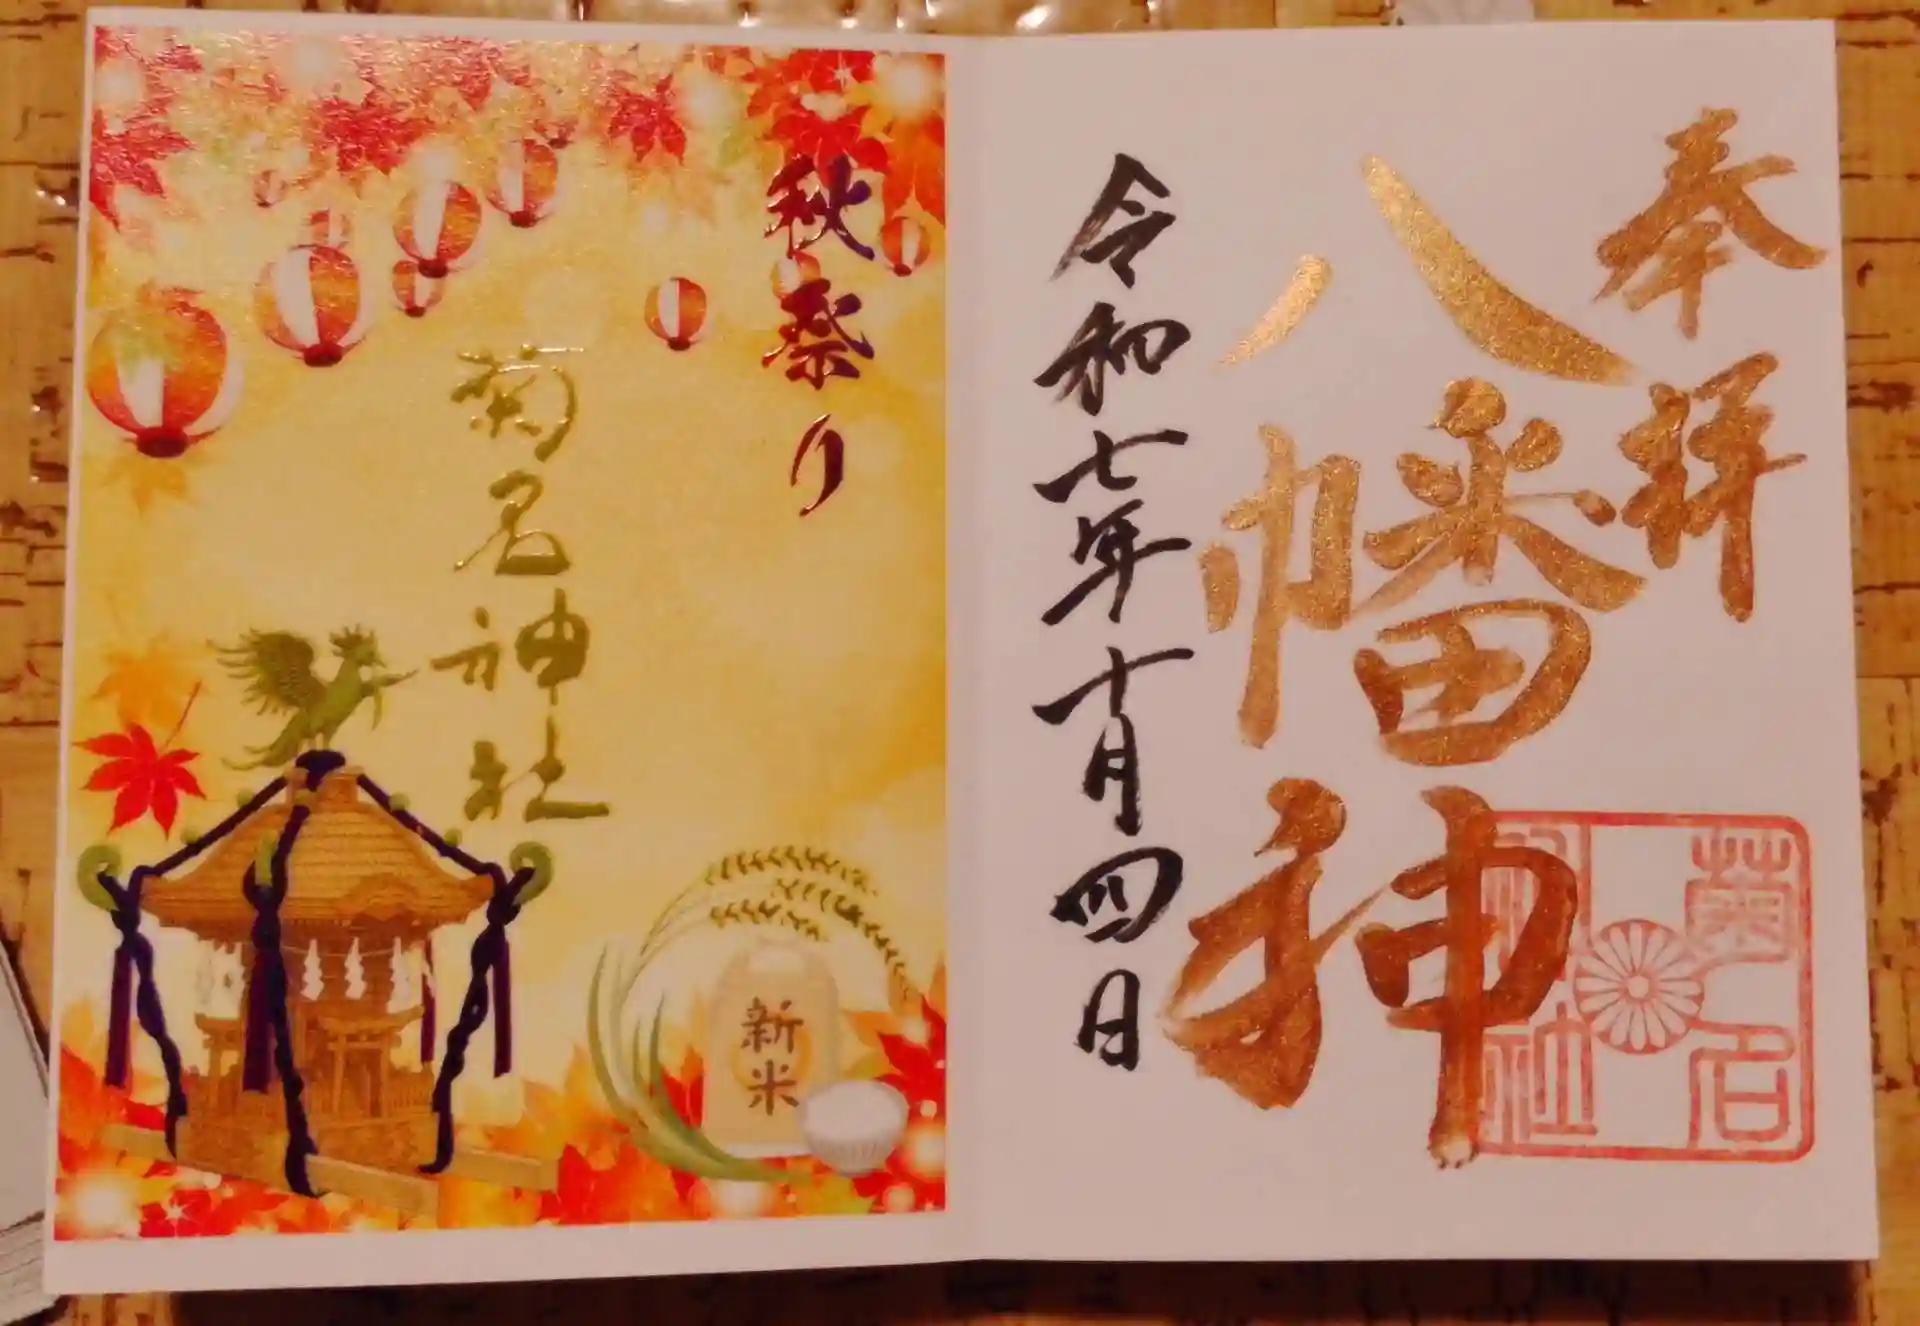 奉拝
八幡神
菊名
神社
令和七年十月四日
秋祭り
菊名神社
新米